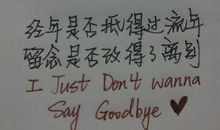 经年是否抵得过流年
留念是否改得了离别
I Just Don't wanna
Say Goodbye ♥